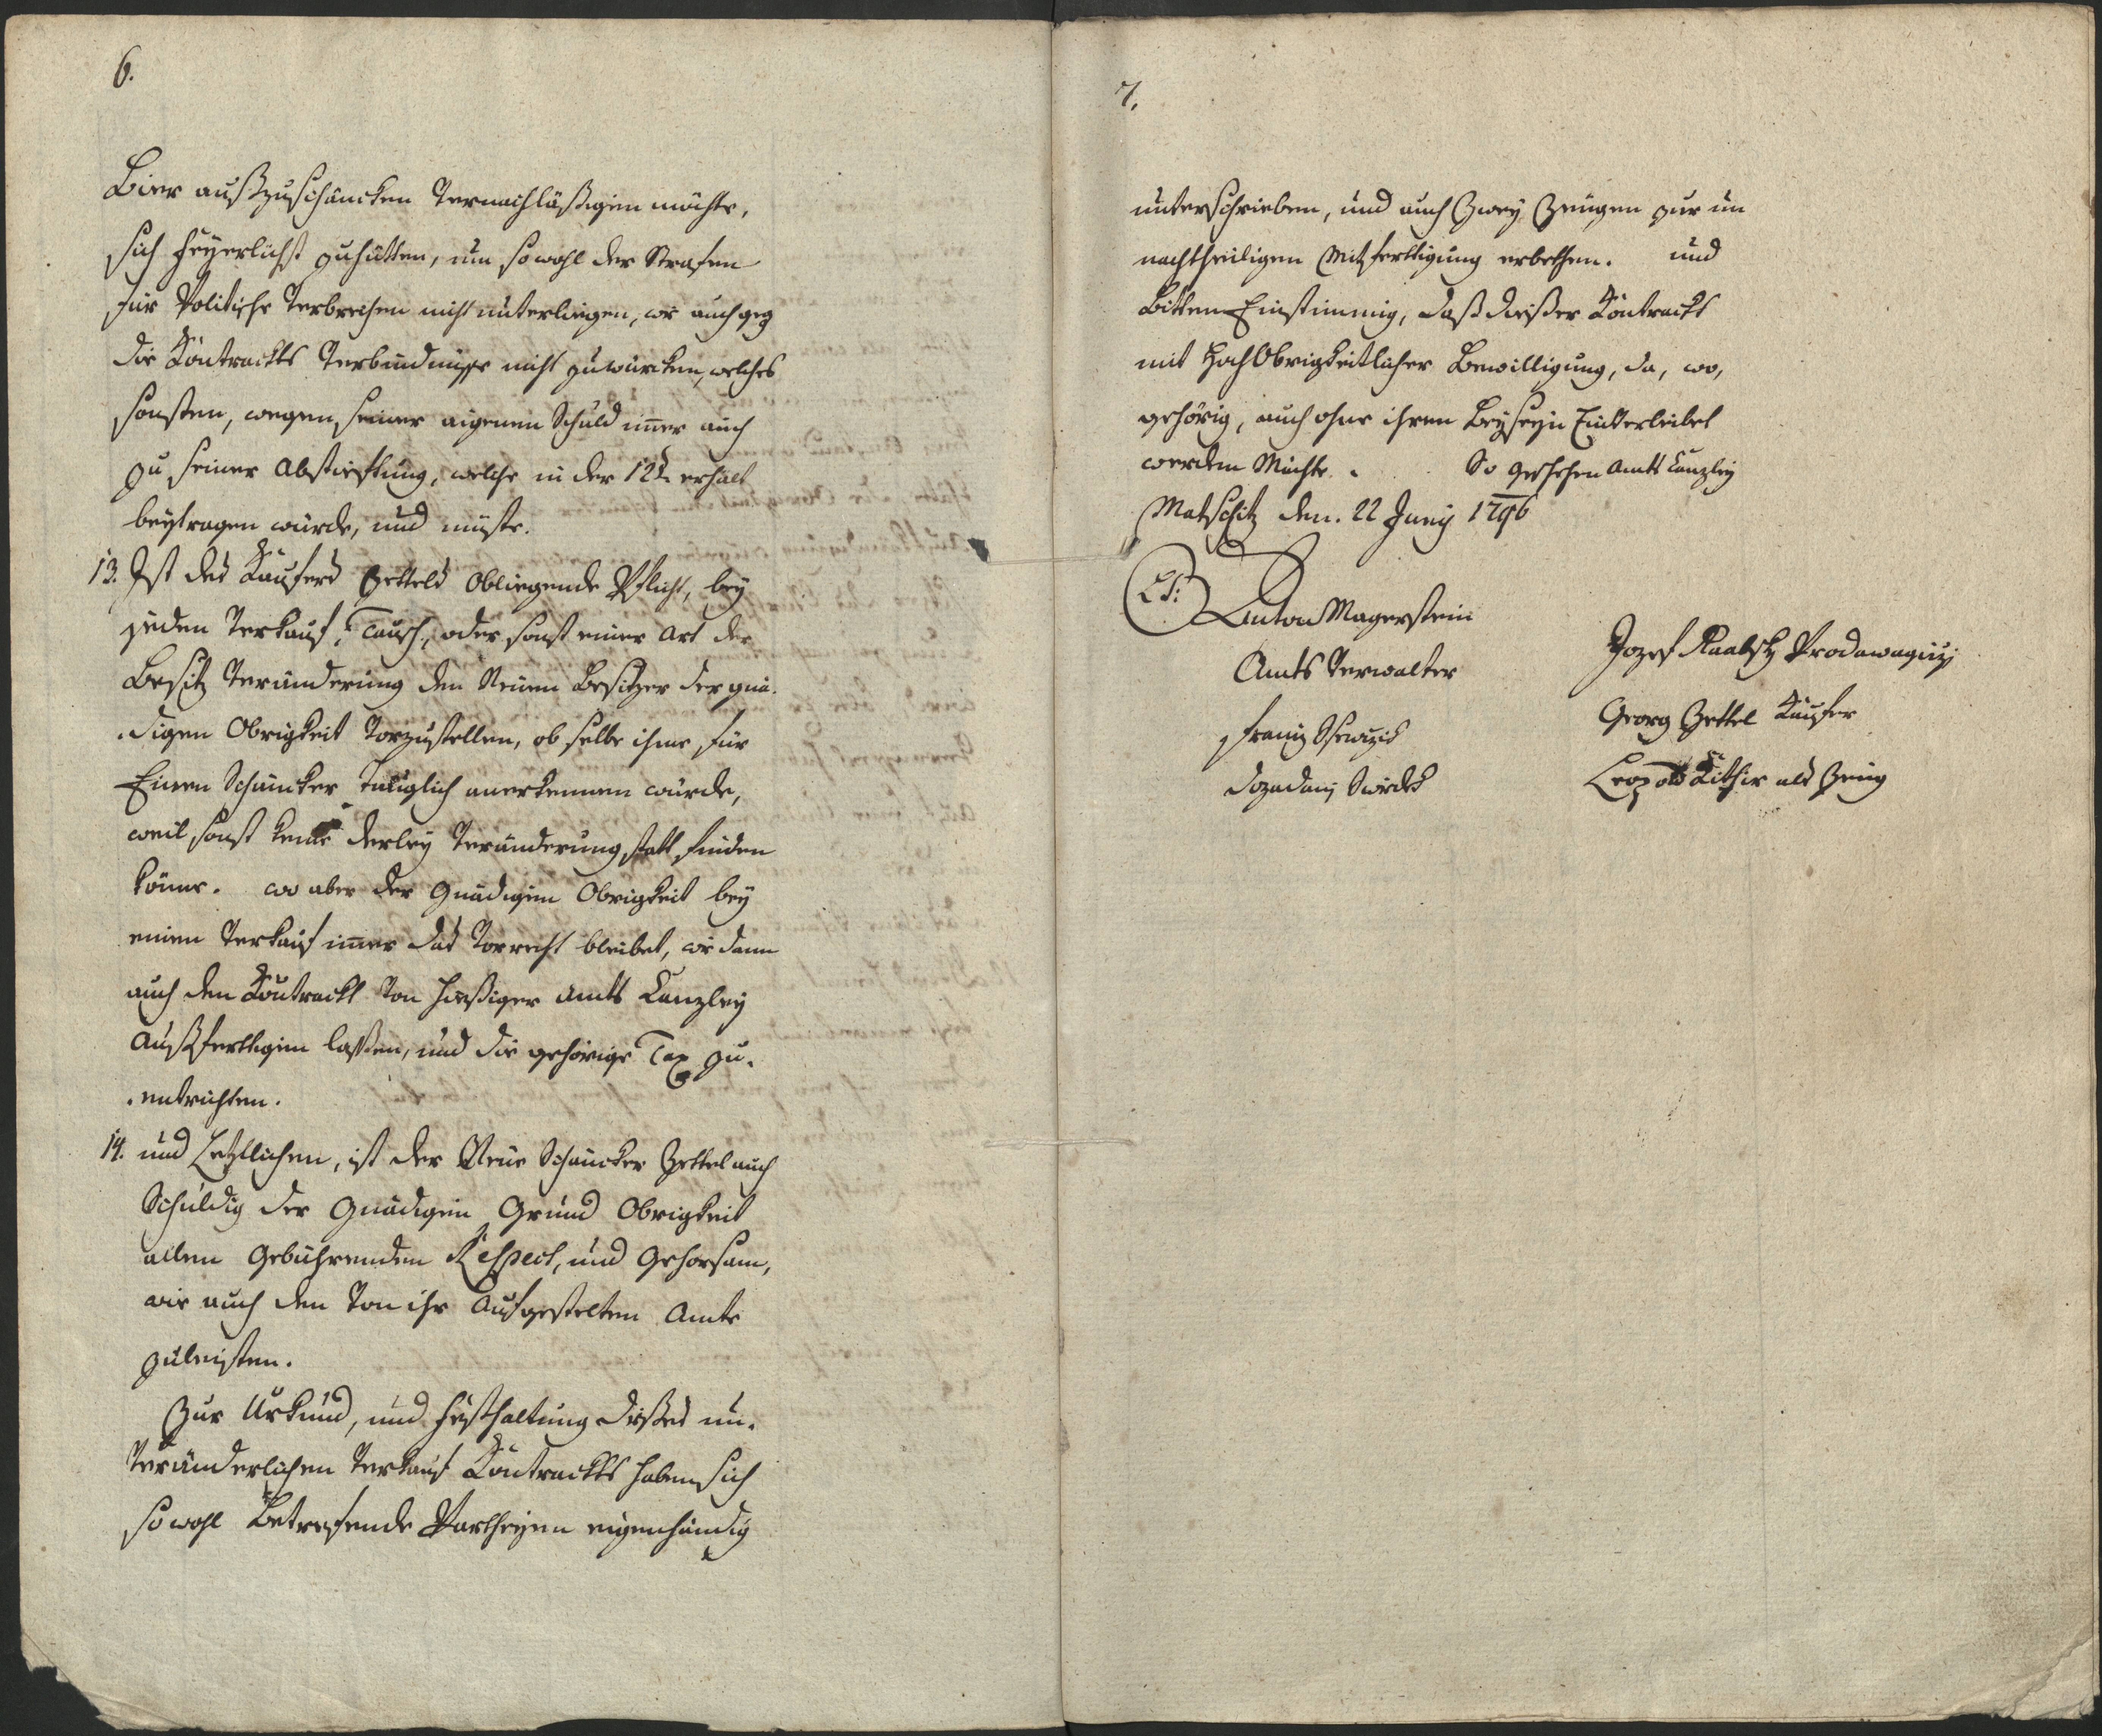 6.
Bier außzuschäncken Vernachläßigen möchte,
sich feyerlichst zuhütten, um sowohl der Strafen
für Politische Verbrechen nicht unterliegen, wie auch geg
die Kontrackts Verbindnüsse nicht zuwürcken, welches
sonsten, wegen seiner aigenen Schuld imer auch
zu seiner Abstieftung, welche in der 12t. erhält
beytragen würde, und müste.
13. Ist des Kaufers Zettels obliegende Pflicht, bey
jeden Verkauf, Tausch, oder sonst einer Art der
Besitz Veränderung den Neuen Besitzer der gnä-
digen Obrigkeit Vorzustellen, ob selbe ihme für
Einen Schäncker Tauglich anerkennen würde,
weil sonst keine derley Veränderung statt finden
könne. wo aber der Gnädigen Obrigkeit bey
einen Verkauf imer das Vorrecht bleibet, wie dann
auch den Kontrackt Von hießiger Amts Kanzley
Außferttigen laßen, und die gehörige Tax zu-
entrichten.
14. und Letztlichen, ist der Neue Schäncker Zettel auch
Schuldig der Gnädigen Grund Obrigkeit
allen Gebührenden Respect, und Gehorsam,
wie auch den Von ihr Aufgestelten Amte
zuleisten.
Zur Urkund, und Festhaltung dießes un-
Veränderlichen Verkauf Kontrackts haben sich
sowohl Betrefende Partheyen eigenhändig
7.
unterschrieben, und auch Zwey Zeugen zur un
nachtheiligen Mitferttigung erbethen. und
Bitten Einstimmig, daß dießer Kontrackt
mit HochObrigkeitlicher Bewilligung, da, wo,
gehörig, auch ohne ihren Beyseyn Einverleibet
werden Möchte. So geschehen Amts Kanzley
Matschitz den. 22 Juny 1796
LS:
Anton Magerstein
Amts Verwalter
Jozef
Georg Zettel Kaufer
Leopold als Zeug